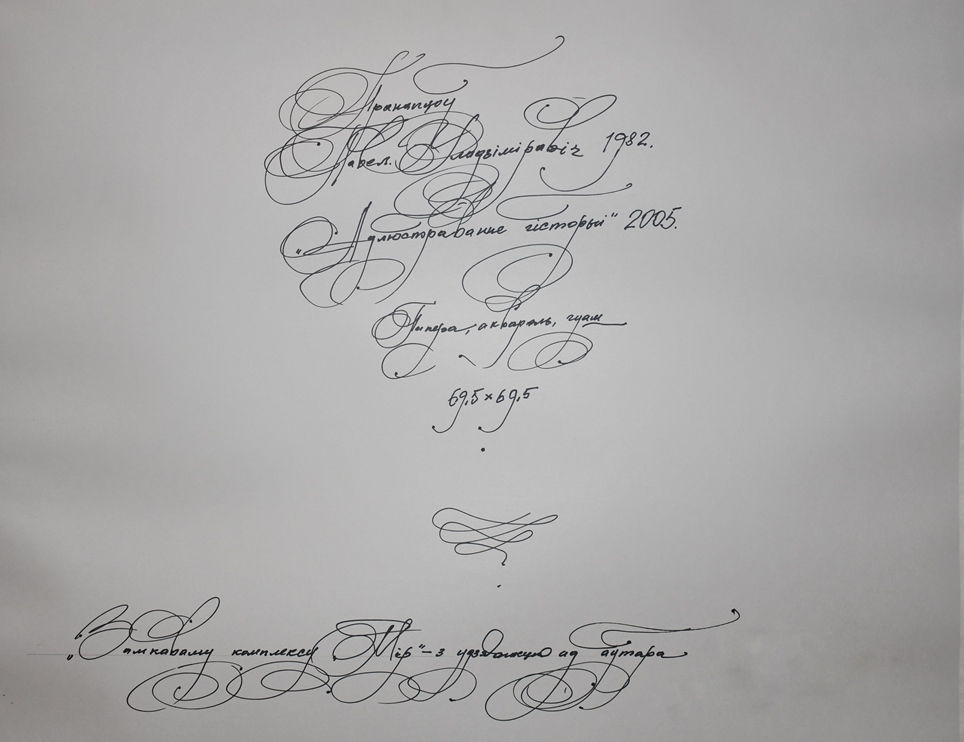 Павел Уладзіміравіч 1982.
"Адлюстраванне гісторыі" 2005.
Папера, акварэль, гуаш
69,5 × 69,5
"Замкаваму комплексу "Мір" – з удзячнасцю ад аўтара